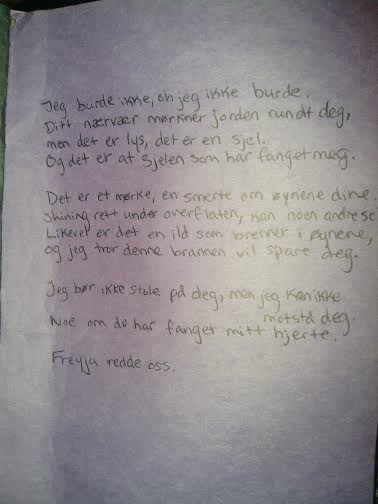 Jeg burde ikke, oh jeg ikke burde.
Ditt nærvær mørkner jorden rundt deg,
men det er lys, det er en sjel.
Og det er at sjelen som har fanget meg.
Det er et mørke, en smerte om øynene dine.
Shining rett under overflaten, kan noen andre se
Likevel er det en ild som brenner i øynene,
og jeg tror denne brannen vil spare deg.
Jeg bør ikke stole på deg, men jeg kan ikke
motstå deg.
Noe om du har fanget mitt hjerte.
Freyja redde oss.